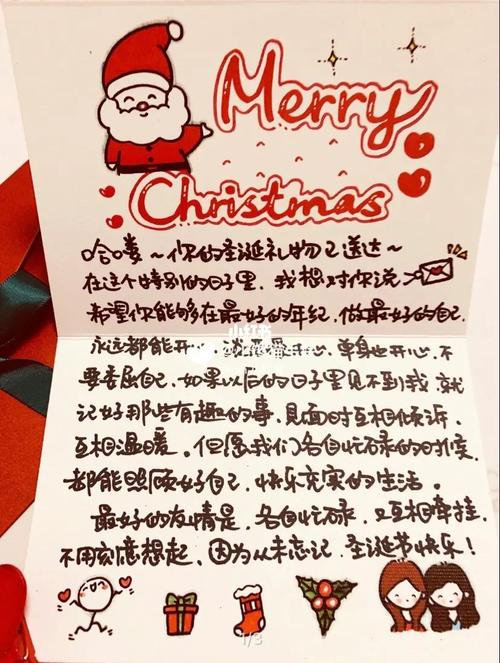 Merry
Christmas
哈喽~你的圣诞礼物已送达~
在这个特别的日子里，我想对你说
希望你能够在最好的年纪，做最好的自己.
永远都能开心，谈恋爱开心，单身也开心.不
要委屈自己.如果以后的日子里见不到我，就
记好那些有趣的事，见面时互相倾诉，
互相温暖。但愿我们各自忙碌的时候，
都能照顾好自己，快乐充实的生活。
最好的友情是，各自忙碌，又互相牵挂，
不用刻意想起，因为从未忘记，圣诞节快乐！
小红书
1/3